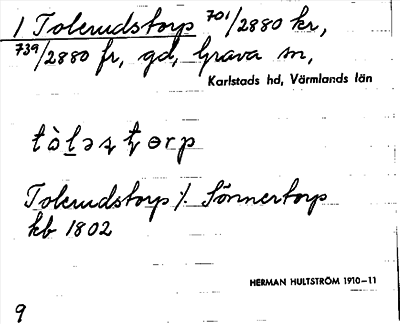 1 Tolerudstorp 701/2880 kr,
739/2880 fr, gd, Grava sn,
Karlstads hd, Värmlands län
Tolerudstorp /. Sönnertorp
kb 1802
HERMAN HULTSTRÖM 1910–11
9